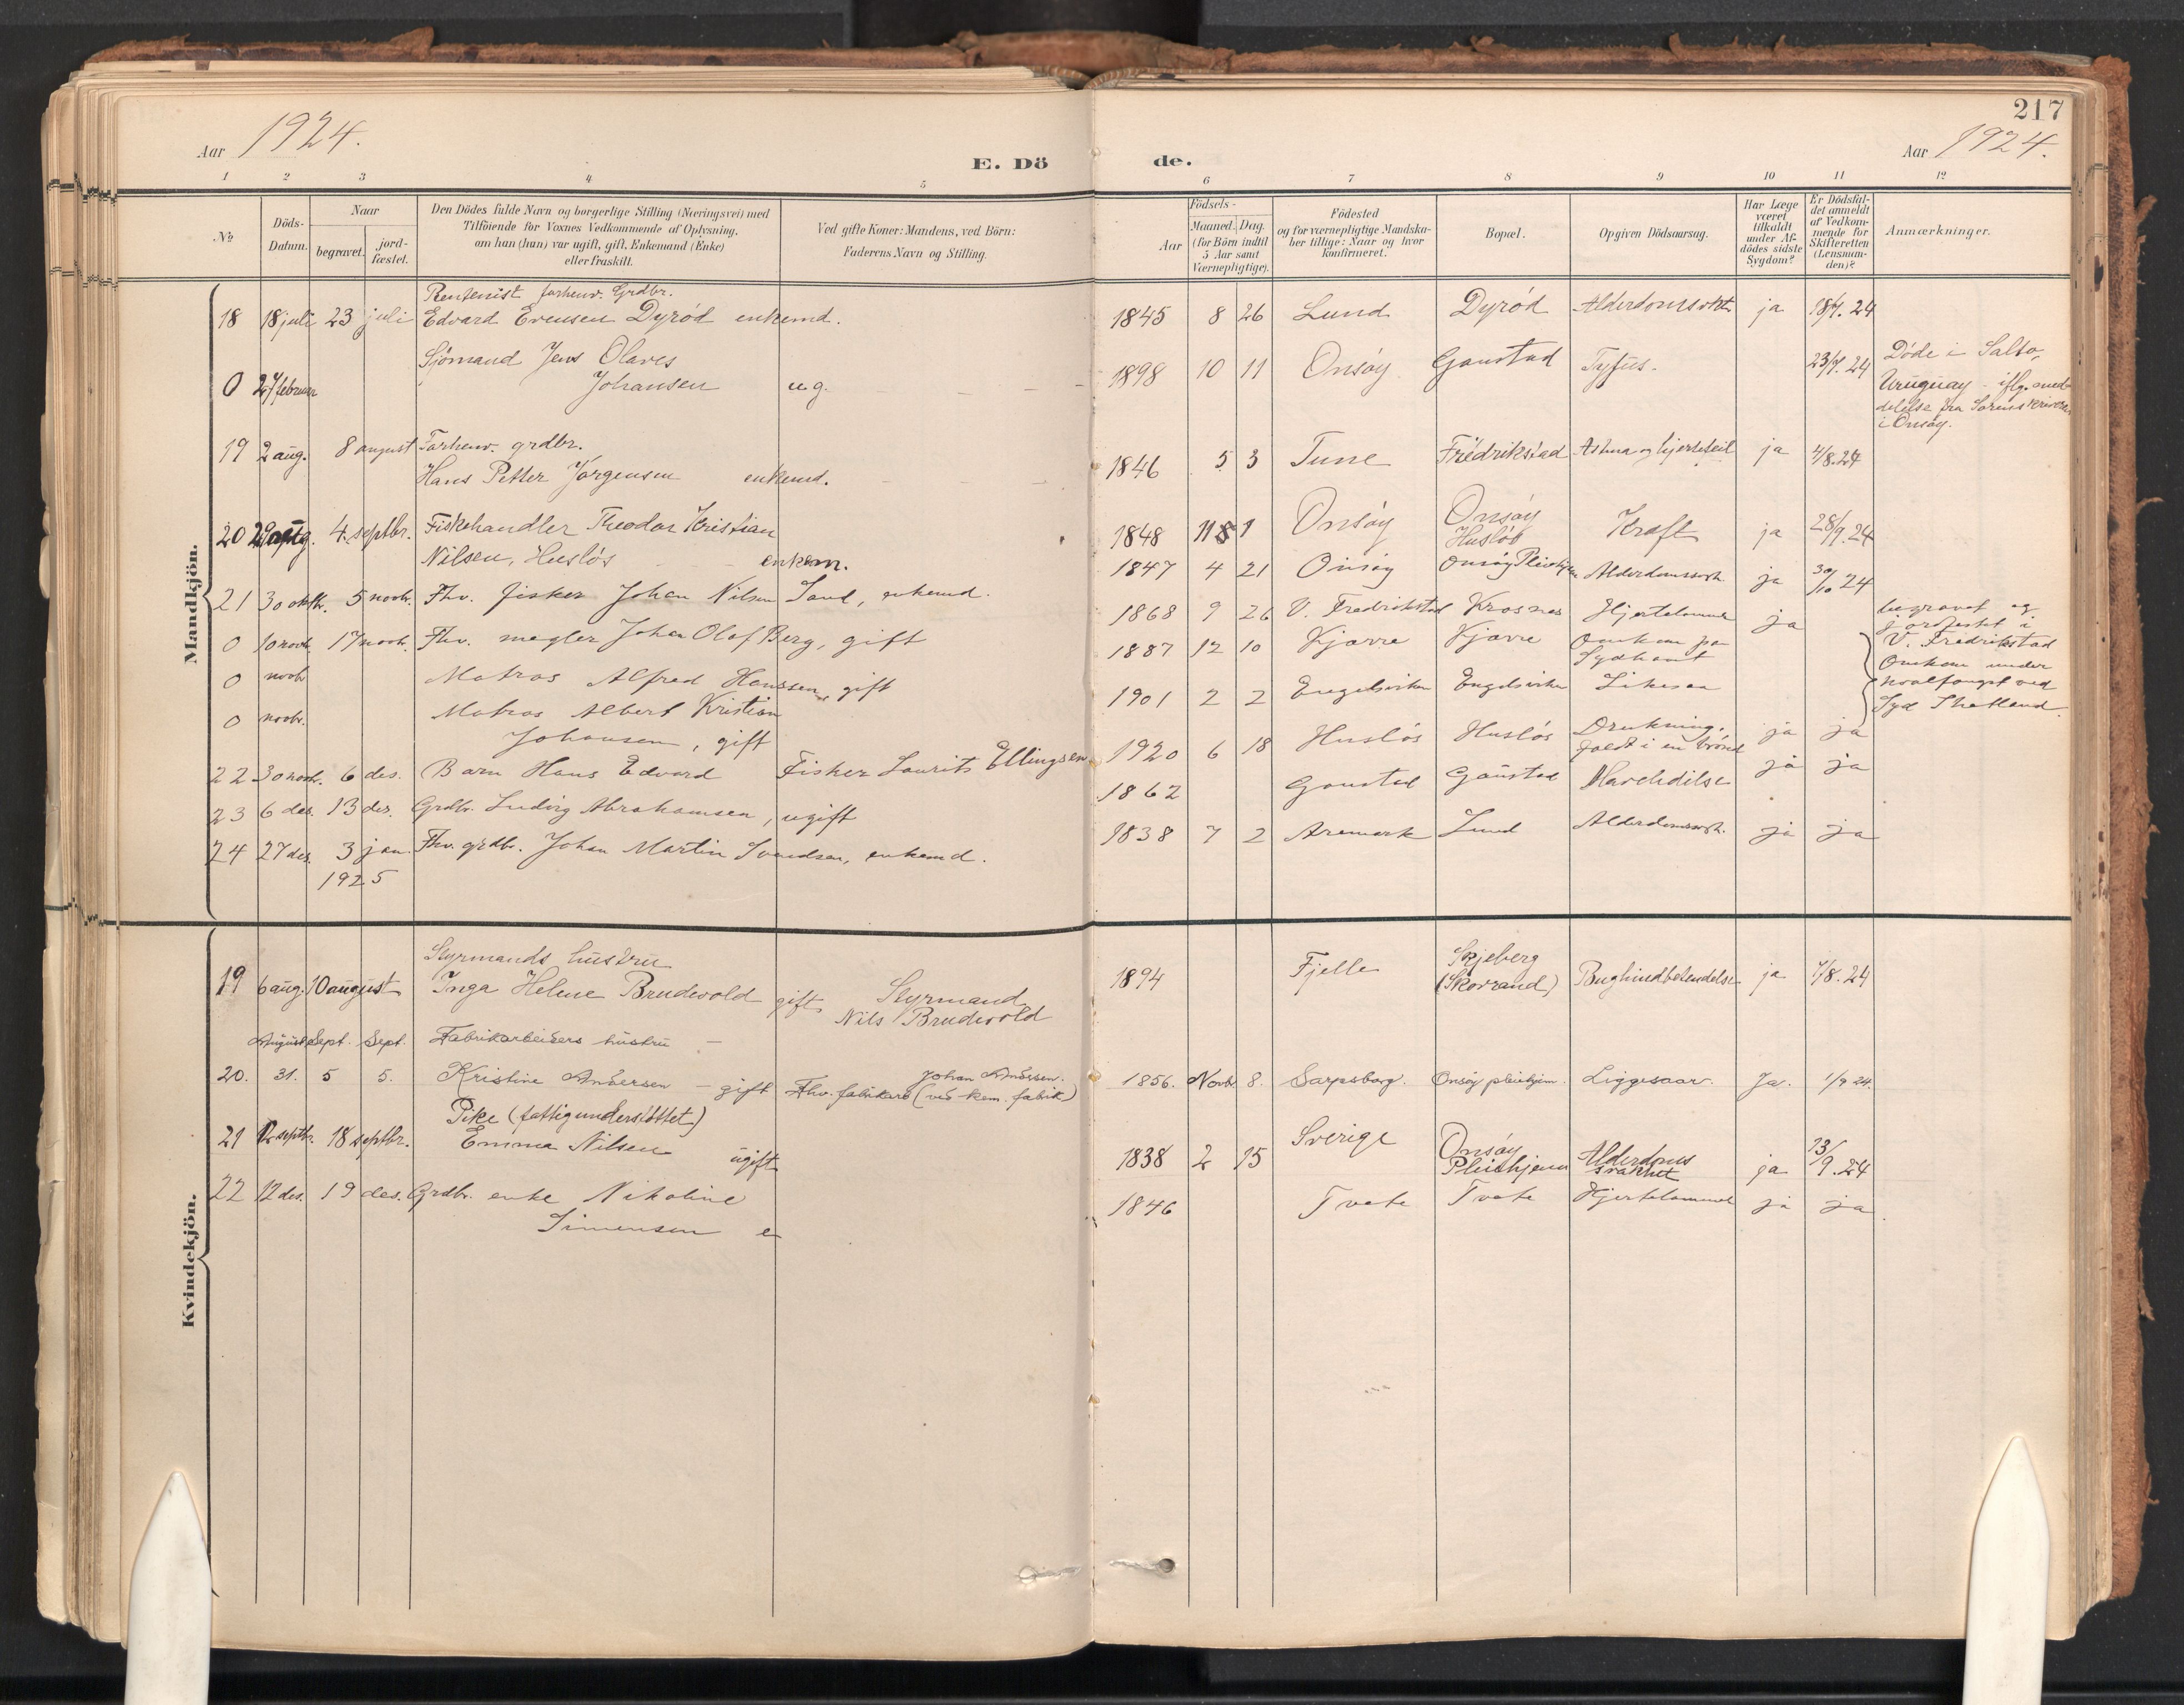 217
Aar 1924.
E. Dö de.
Aar 1924.
1 2 3 4 5 6 7 8 9 10 11 12
No
Döds-
Datum.
Naar
begravet.
jord-
fæstet.
Den Dödes fulde Navn og borgerlige Stilling (Næringsvei) med
Tilföiende for Voxnes Vedkommende af Oplysning.
om han (hun) var ugift, gift, Enkemand (Enke)
eller fraskilt.
Ved gifte Koner: Mandens, ved Börn:
Faderens Navn og Stilling.
Födsels-
Aar
Maaned. Dag.
(for Börn indtil
5 Aar samt
Værnepligtige).
Födested
og for værnepligtige Mandska-
ber tillige: Naar og hvor
konfirmeret.
Bopæl.
Opgiven Dödsaarsag.
Har Læge
været
tilkaldt
under Af-
dödes sidste
Sygdom?
Er Dödsfal-
det anmeldt
af Vedkom-
mende for
Skifteretten
(Lensman-
den)?
Anmærkninger.
Mandkjön.
Rentenist forhenv. Grdbr.
18 18 juli 23 juli Edvard Evensen Dyröd enkemd. 1845 8 26 Lund Dyröd Alderdomssvakh. ja 18/7. 24
Sjömand Jens Olaves
0 27 februar Johansen u.g. 1898 10 11 Onsöy Gaustad Tyfus. 23/7. 24 Döde i Salto,
Uruguay - iflg. med-
delelse fra Sorenskriveren
i Onsöy.
19 2 aug. 8 august Forhenv. grdbr.
Hans Petter Jörgensen enkemd. 1846 5 3 Tune Fredrikstad Astma og hjertefeil ja 4/8. 24
20 4. septbr. Fiskehandler Theodor Kristian
Nilsen, Huslös enkem. 1848 1 Onsöy Onsöy
Huslös Kræft ja 28/9. 24
21 30 oktbr. 5 novbr. Fhv. fisker Johan Nilsen Sand, enkemd. 1847 4 21 Onsöy Onsöy Pleiehjem Alderdomssvakh. ja 30/10 24
0 10 novbr. 17 novbr. Fhv. megler Johan Olaf Berg, gift 1868 9 26 V. Fredrikstad Krosnes Hjertelammelse ja begravet og
jordfestet i
V. Fredrikstad
0 novbr. Matros Alfred Hanssen, gift 1887 12 10 Kjærre Kjærre Omkom paa
Sydhavet Omkom under
hvalfangst ved
Syd Shetland.
0 novbr. Matros Albert Kristian
Johansen, gift 1901 2 2 Engelsviken Engelsviken Likesaa
22 30 novbr. 6 des. Barn Hans Edvard Fisker Laurits Ellingsen 1920 6 18 Huslös Huslös Drukning.
faldt i en brönd ja ja
23 6 des. 13 des. Grdbr. Ludvig Abrahamsen, ugift 1862 Gaustad Gaustad Mavelidelse ja ja
24 27 des. 3 jan. Fhv. grdbr. Johan Martin Svendsen, enkemd. 1838 7 2 Aremark Lund Alderdomssvakh. ja ja
1925
Kvindekjön.
Styrmands hustru
19 6 aug. 10 august Inga Helene Brudevold gift Styrmand
Nils Brudevold 1894 Fjelle Skjeberg
(Skovrand) Bughindbetendelse ja 7/8. 24
August Sept. Sept. Fabrikarbeiders hustru -
20. 31. 5 5. Kristine Andersen - gift Johan Andersen.
Fhv. fabrikarb (ved kem. fabrik) 1856. Novb. 8. Sarpsborg. Onsöy pleiehjem. Liggesaar. Ja. 1/9 24.
Pike (fattigunderstöttet)
21 12 septbr. 18 septbr. Emma Nilsen ugift 1838 2 15 Sverige Onsöy
Pleiehjem Alderdoms
svakhet ja 13/9. 24
22 12 des. 19 des. Grdbr. enke Nikoline
Simensen e 1846 Tvete Tvete Hjertelammel ja ja